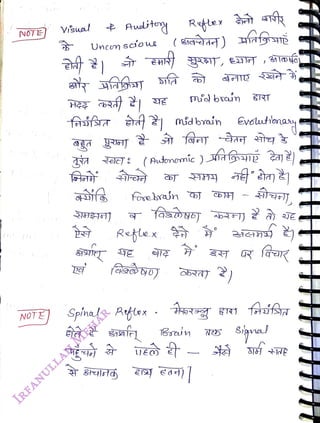 NOTE Visual & Auditory Reflex दोनों शरीर
के Unconscious (अवचेतन) प्रतिक्रियाएँ
होती है। जो हमारी सुरक्षा, ध्यान,
और प्रतिक्रिया गति को बनाए रखने में
मदद करती है। यह midbrain द्वारा
नियंत्रित होती है। midbrain Evolutionary
बहुत पुराना है जो बिना - चेतन सोच के
तुरंत स्वतः (Autonomic) प्रतिक्रियाएं देता है।
जिनमें सोचने का समय नहीं होता है।
क्योंकि Forebrain का काम - सोचना,
समझना व विश्लेषण करना है तो यह
ऐसे Reflex देने में असमर्थ है।
अर्थात् यह बाद में उस पर विचार
एवं विश्लेषण करता है।
NOTE Spinal Reflex - मेरुरज्जु द्वारा नियंत्रित
होते है अर्थात् Brain तक Signal
पहुँचने से पहले ही - जैसे गर्म सतह
से अचानक हाथ हटना।
IRFANULLAH